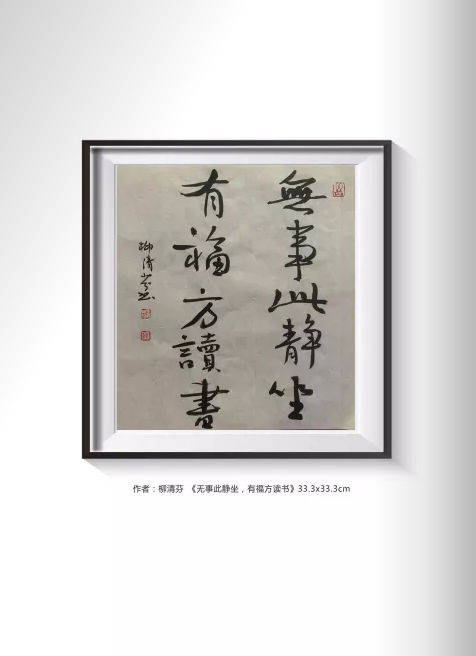 無事此静坐
有福方讀書
柳清芬书
作者：柳清芬 《无事此静坐，有福方读书》33.3x33.3cm